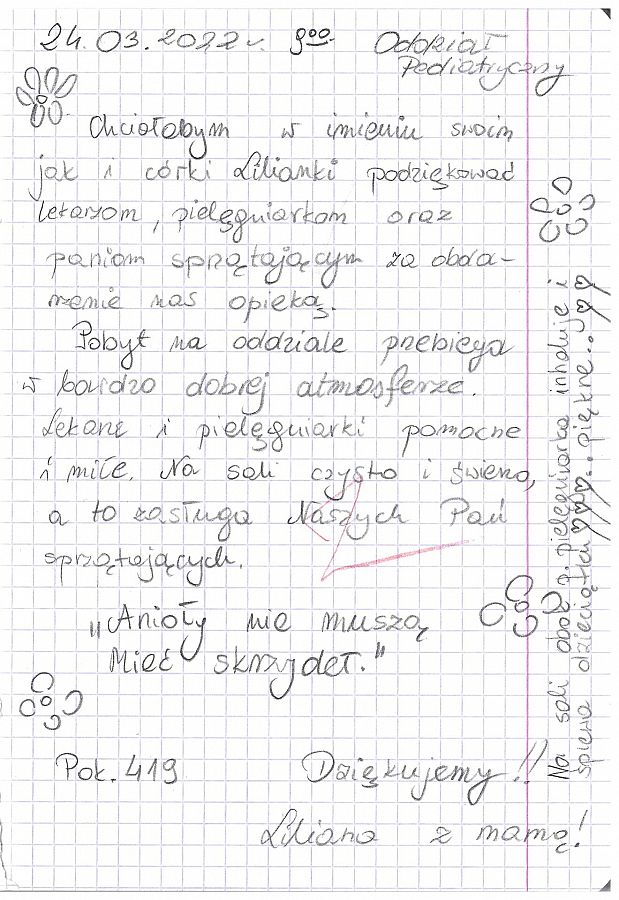 24.03.2022r. 9⁰⁰ Oddział
Pediatryczny
Chciałabym w imieniu swoim
jak i córki Lilianki podziękować
lekarzom, pielęgniarkom oraz
paniom sprzątającym za obda-
rzenie nas opieką.
Pobyt na oddziale przebiega
w bardzo dobrej atmosferze.
Lekarze i pielęgniarki pomocne
i miłe. Na sali czysto i świeżo,
a to zasługa Naszych Pań
sprzątających.
"Anioły nie muszą
Mieć skrzydeł."
Pok. 419 Dziękujemy!!
Liliana z mamą!
Na sali obok p. pielęgniarka inhaluje i
śpiewa dzieciątku ♡♡♡...piękne...♡♡♡